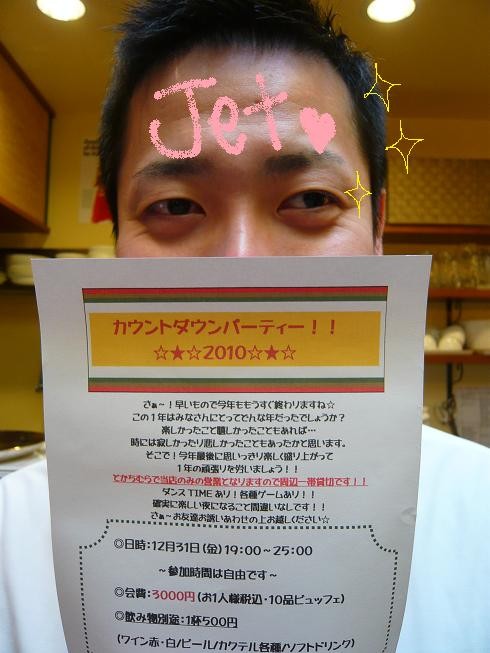 Jet
カウントダウンパーティー！！
☆★☆2010☆★☆
さぁ～！早いもので今年ももうすぐ終わりますね☆
この1年はみなさんにとってどんな年だったでしょうか？
楽しかったこと嬉しかったこともあれば…
時には寂しかったり悲しかったこともあったかと思います。
そこで！今年最後に思いっきり楽しく盛り上がって
1年の頑張りを労いましょう！！
とかちむらで当店のみの営業となりますので周辺一帯貸切です！！
ダンスTIMEあり！各種ゲームあり！！
確実に楽しい夜になること間違いなしです！！
さぁ～お友達お誘いあわせの上お越しください☆
◎日時：12月31日（金）19:00～25:00
～参加時間は自由です～
◎会費：3000円（お1人様税込・10品ビュッフェ）
◎飲み物別途：1杯500円
（ワイン赤・白/ビール/カクテル各種/ソフトドリンク）